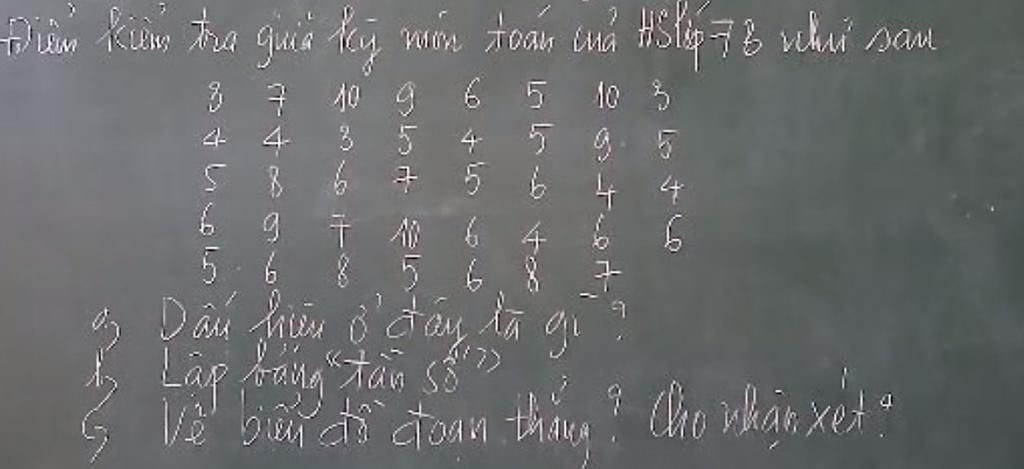 Điểm kiểm tra giữa kỳ môn toán của HS lớp 7B như sau
8 7 10 9 6 5 10 3
4 4 3 5 4 5 9 5
5 8 6 7 5 6 4 4
6 9 7 10 6 4 6 6
5 6 8 5 6 8 7
a, Dấu hiệu ở đây là gì?
b, Lập bảng "tần số"
c, Vẽ biểu đồ đoạn thẳng? Cho nhận xét?